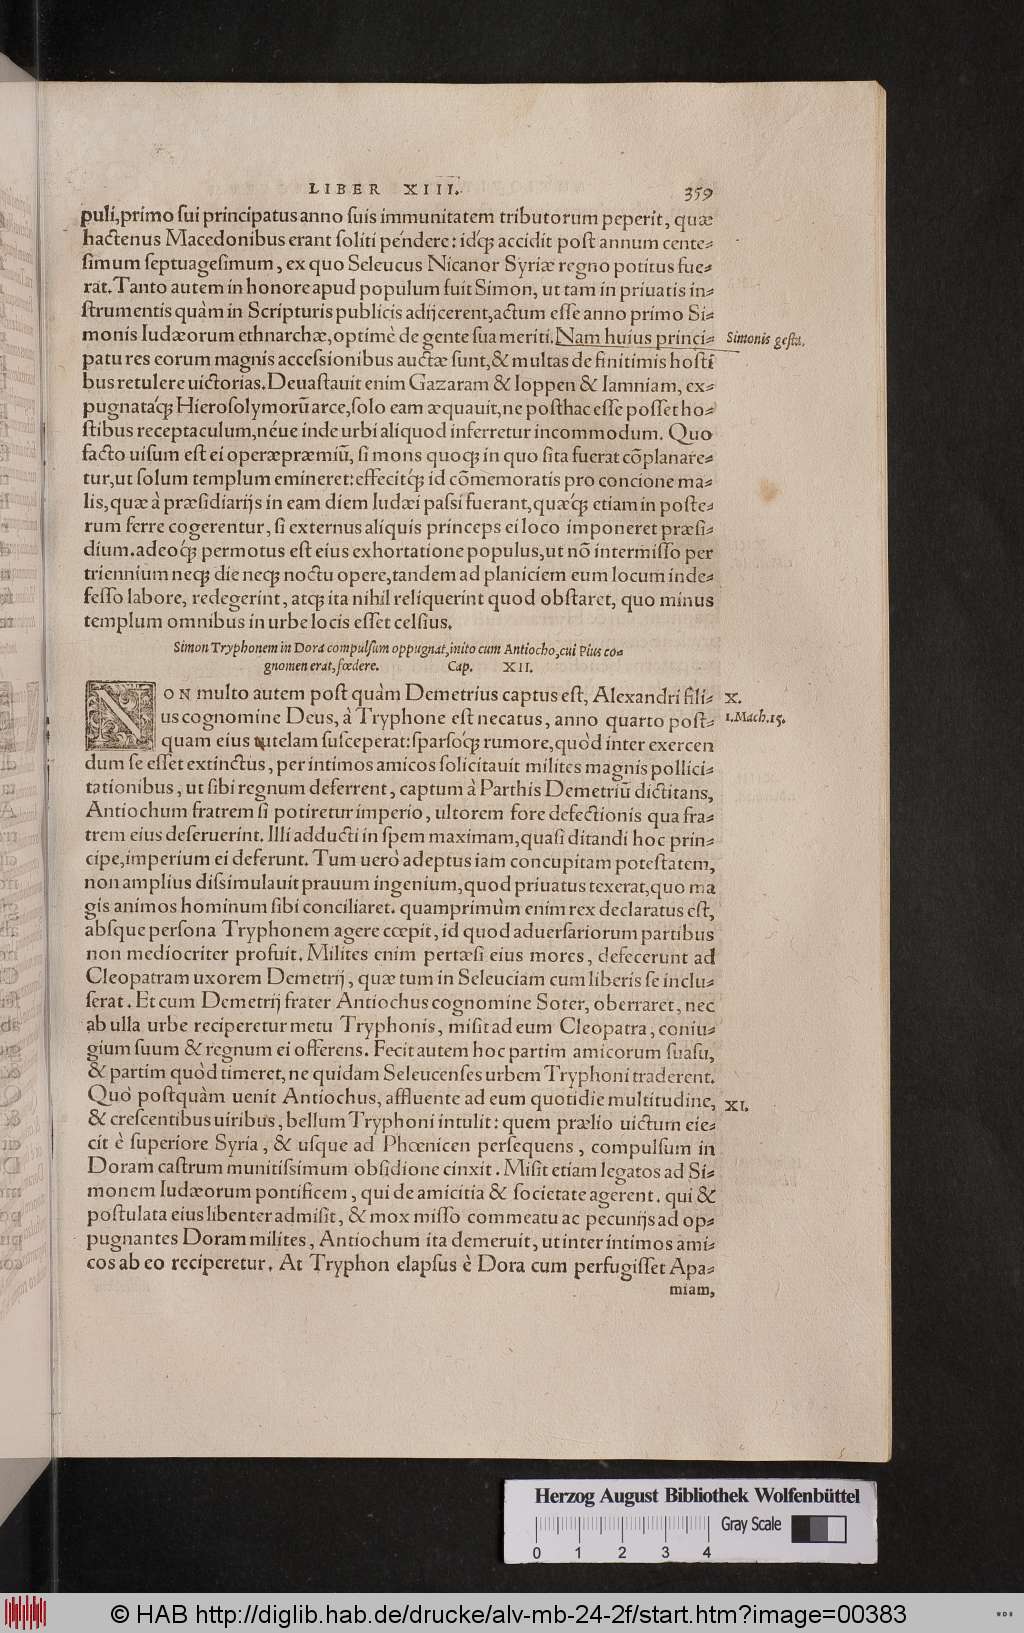 LIBER XIII. 359
puli, primo sui principatus anno suis immunitatem tributorum peperit, quæ
hactenus Macedonibus erant soliti péndere: idq́; accidit post annum cente-
simum septuagesimum, ex quo Seleucus Nicanor Syriæ regno potitus fue-
rat. Tanto autem in honore apud populum fuit Simon, ut tam in priuatis in-
strumentis quàm in Scripturis publicis adijcerent, actum esse anno primo Si-
monis Iudæorum ethnarchæ, optimè de gente sua meriti. Nam huius princi-
Simonis gesta.
patu res eorum magnis accessionibus auctæ sunt, & multas de finitimis hosti
bus retulere uictorias. Deuastauit enim Gazaram & Ioppen & Iamniam, ex-
pugnataq́; Hierosolymorũ arce, solo eam æquauit, ne posthac esse posset ho-
stibus receptaculum, néue inde urbi aliquod inferretur incommodum. Quo
facto uisum est ei operæpræmiũ, si mons quoq; in quo sita fuerat cõplanare-
tur, ut solum templum emineret: effecitq́; id cõmemoratis pro concione ma-
lis, quæ à præsidiarijs in eam diem Iudæi passi fuerant, quæq́; etiam in poste-
rum ferre cogerentur, si externus aliquis princeps ei loco imponeret præsi-
dium. adeoq́; permotus est eius exhortatione populus, ut nõ intermisso per
triennium neq; die neq; noctu opere, tandem ad planiciem eum locum inde-
fesso labore, redegerint, atq; ita nihil reliquerint quod obstaret, quo minus
templum omnibus in urbe locis esset celsius.
Simon Tryphonem in Dora compulsum oppugnat, inito cum Antiocho, cui Pius co-
gnomen erat, fœdere. Cap. XII.
NON multo autem post quàm Demetrius captus est, Alexandri fili-
X.
us cognomine Deus, à Tryphone est necatus, anno quarto post-
1.Mach.15.
quam eius tutelam susceperat: sparsoq́; rumore, quòd inter exercen
dum se esset extinctus, per intimos amicos solicitauit milites magnis pollici-
tationibus, ut sibi regnum deferrent, captum à Parthis Demetriũ dictitans,
Antiochum fratrem si potiretur imperio, ultorem fore defectionis qua fra-
trem eius deseruerint. Illi adducti in spem maximam, quasi ditandi hoc prin-
cipe, imperium ei deferunt. Tum uerò adeptus iam concupitam potestatem,
non amplius dissimulauit prauum ingenium, quod priuatus texerat, quo ma
gis animos hominum sibi conciliaret. quamprimùm enim rex declaratus est,
absque persona Tryphonem agere cœpit, id quod aduersariorum partibus
non mediocriter profuit. Milites enim pertæsi eius mores, defecerunt ad
Cleopatram uxorem Demetrij, quæ tum in Seleuciam cum liberis se inclu-
serat. Et cum Demetrij frater Antiochus cognomine Soter, oberraret, nec
ab ulla urbe reciperetur metu Tryphonis, misit ad eum Cleopatra, coniu-
gium suum & regnum ei offerens. Fecit autem hoc partim amicorum suasu,
& partim quòd timeret, ne quidam Seleucenses urbem Tryphoni traderent.
Quò postquàm uenit Antiochus, affluente ad eum quotidie multitudine,
XI.
& crescentibus uiribus, bellum Tryphoni intulit: quem prælio uictum eie-
cit è superiore Syria, & usque ad Phœnicen persequens, compulsum in
Doram castrum munitissimum obsidione cinxit. Misit etiam legatos ad Si-
monem Iudæorum pontificem, qui de amicitia & societate agerent. qui &
postulata eius libenter admisit, & mox misso commeatu ac pecunijs ad op-
pugnantes Doram milites, Antiochum ita demeruit, ut inter intimos ami-
cos ab eo reciperetur. At Tryphon elapsus è Dora cum perfugisset Apa-
miam,
Herzog August Bibliothek Wolfenbüttel
Gray Scale
0 1 2 3 4
© HAB http://diglib.hab.de/drucke/alv-mb-24-2f/start.htm?image=00383